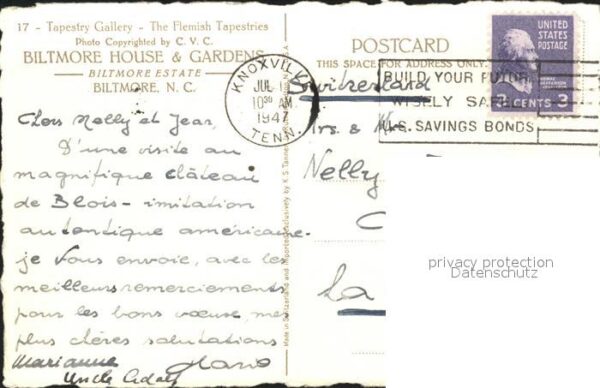 17 - Tapestry Gallery - The Flemish Tapestries
Photo Copyrighted by C. V. C.
BILTMORE HOUSE & GARDENS
BILTMORE ESTATE
BILTMORE, N. C.
Chers Nelly et Jean,
D'une visite au
magnifique château
de Blois - imitation
autentique américaine -
je vous envoie, avec les
meilleurs remerciements
pour les bons vœux, mes
plus chères salutations
Marianne Hans
Uncle
POSTCARD
THIS SPACE FOR ADDRESS ONLY.
KNOXVILLE
JUL 1
10 30 AM
1947
TENN.
UNITED
STATES
POSTAGE
3 CENTS 3
BUILD YOUR FUTUR
WISELY SAFELY
U.S. SAVINGS BONDS
Switzerland
Mrs. & Mr.
Nelly
La
privacy protection
Datenschutz